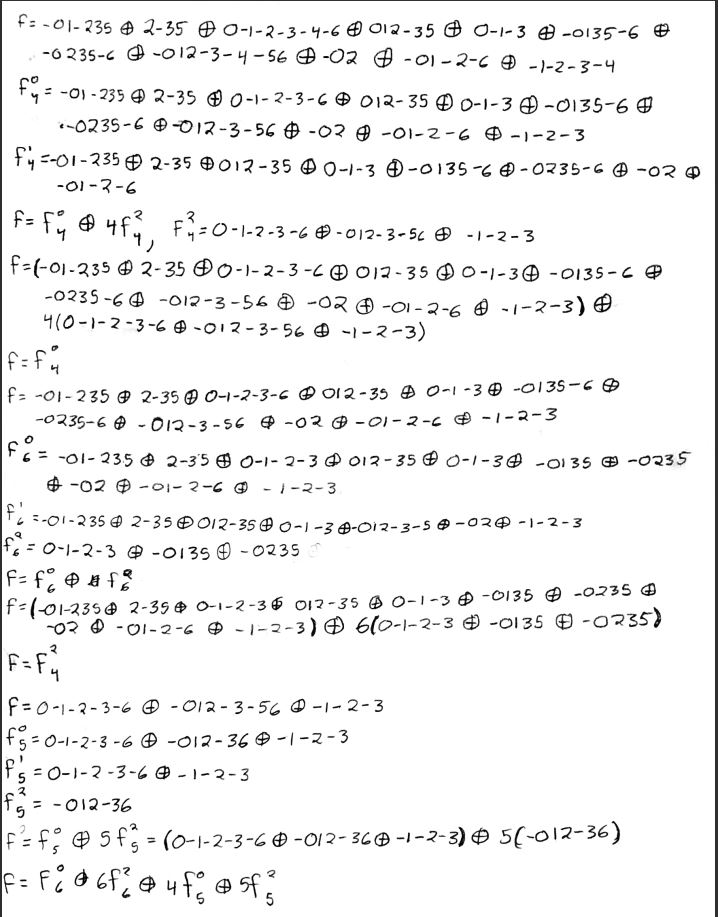 f= -01-235 ⊕ 2-35 ⊕ 0-1-2-3-4-6 ⊕ 012-35 ⊕ 0-1-3 ⊕ -0135-6 ⊕
-0235-6 ⊕ -012-3-4-56 ⊕ -02 ⊕ -01-2-6 ⊕ -1-2-3-4
f⁰₄ = -01-235 ⊕ 2-35 ⊕ 0-1-2-3-6 ⊕ 012-35 ⊕ 0-1-3 ⊕ -0135-6 ⊕
-0235-6 ⊕ -012-3-56 ⊕ -02 ⊕ -01-2-6 ⊕ -1-2-3
f¹₄ = -01-235 ⊕ 2-35 ⊕ 012-35 ⊕ 0-1-3 ⊕ -0135-6 ⊕ -0235-6 ⊕ -02 ⊕
-01-2-6
f= f⁰₄ ⊕ 4f²₄, f²₄ = 0-1-2-3-6 ⊕ -012-3-56 ⊕ -1-2-3
f=(-01-235 ⊕ 2-35 ⊕ 0-1-2-3-6 ⊕ 012-35 ⊕ 0-1-3 ⊕ -0135-6 ⊕
-0235-6 ⊕ -012-3-56 ⊕ -02 ⊕ -01-2-6 ⊕ -1-2-3) ⊕
4(0-1-2-3-6 ⊕ -012-3-56 ⊕ -1-2-3)
f= f⁰₄
f= -01-235 ⊕ 2-35 ⊕ 0-1-2-3-6 ⊕ 012-35 ⊕ 0-1-3 ⊕ -0135-6 ⊕
-0235-6 ⊕ -012-3-56 ⊕ -02 ⊕ -01-2-6 ⊕ -1-2-3
f⁰₆ = -01-235 ⊕ 2-35 ⊕ 0-1-2-3 ⊕ 012-35 ⊕ 0-1-3 ⊕ -0135 ⊕ -0235
⊕ -02 ⊕ -01-2-6 ⊕ -1-2-3
f¹₆ = -01-235 ⊕ 2-35 ⊕ 012-35 ⊕ 0-1-3 ⊕ -012-3-5 ⊕ -02 ⊕ -1-2-3
f²₆ = 0-1-2-3 ⊕ -0135 ⊕ -0235
F= f⁰₆ ⊕ f²₆
f=(-01-235 ⊕ 2-35 ⊕ 0-1-2-3 ⊕ 012-35 ⊕ 0-1-3 ⊕ -0135 ⊕ -0235 ⊕
-02 ⊕ -01-2-6 ⊕ -1-2-3) ⊕ 6(0-1-2-3 ⊕ -0135 ⊕ -0235)
F= F²₄
f= 0-1-2-3-6 ⊕ -012-3-56 ⊕ -1-2-3
f⁰₅ = 0-1-2-3-6 ⊕ -012-36 ⊕ -1-2-3
f¹₅ = 0-1-2-3-6 ⊕ -1-2-3
f²₅ = -012-36
f= f⁰₅ ⊕ 5f²₅ = (0-1-2-3-6 ⊕ -012-36 ⊕ -1-2-3) ⊕ 5(-012-36)
F= F⁰₆ ⊕ 6f²₆ ⊕ 4f⁰₅ ⊕ 5f²₅